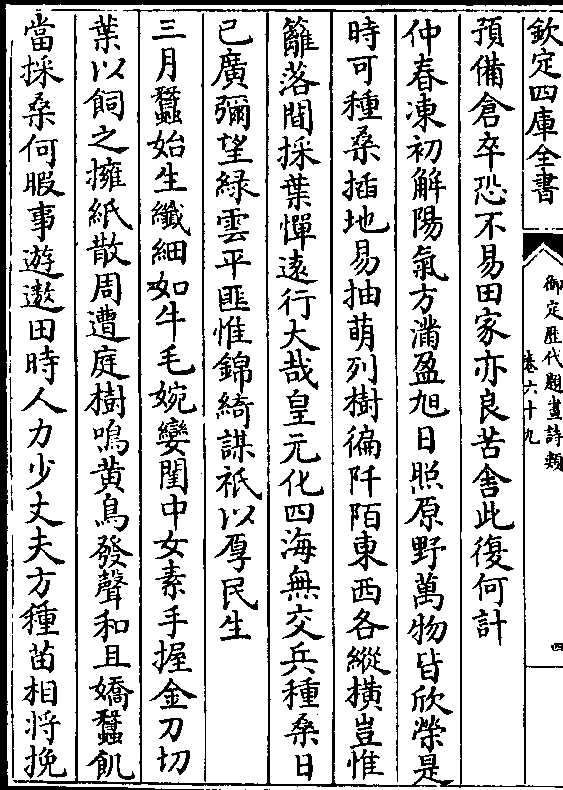 欽定四庫全書
御定歷代題畫詩類
卷六十九
四
預備倉卒恐不易田家亦良苦舍此復何計
仲春凍初解陽氣方滿盈旭日照原野萬物皆欣榮是
時可種桑插地易抽萌列樹徧阡陌東西各縱橫豈惟
籬落間採葉憚遠行大哉皇元化四海無交兵種桑日
已廣彌望緑雲平匪惟錦綺謀祇以厚民生
三月蠶始生纖細如牛毛婉孌閨中女素手握金刀切
葉以飼之擁紙散周遭庭樹鳴黄鳥發聲和且嬌蠶飢
當採桑何暇事遊遨田時人力少丈夫方種苗相將挽